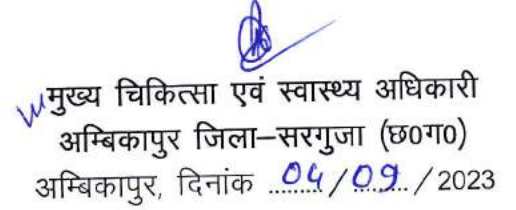 मुख्य चिकित्सा एवं स्वास्थ्य अधिकारी
अम्बिकापुर जिला–सरगुजा (छ०ग०)
अम्बिकापुर, दिनांक ..04../..09.. / 2023